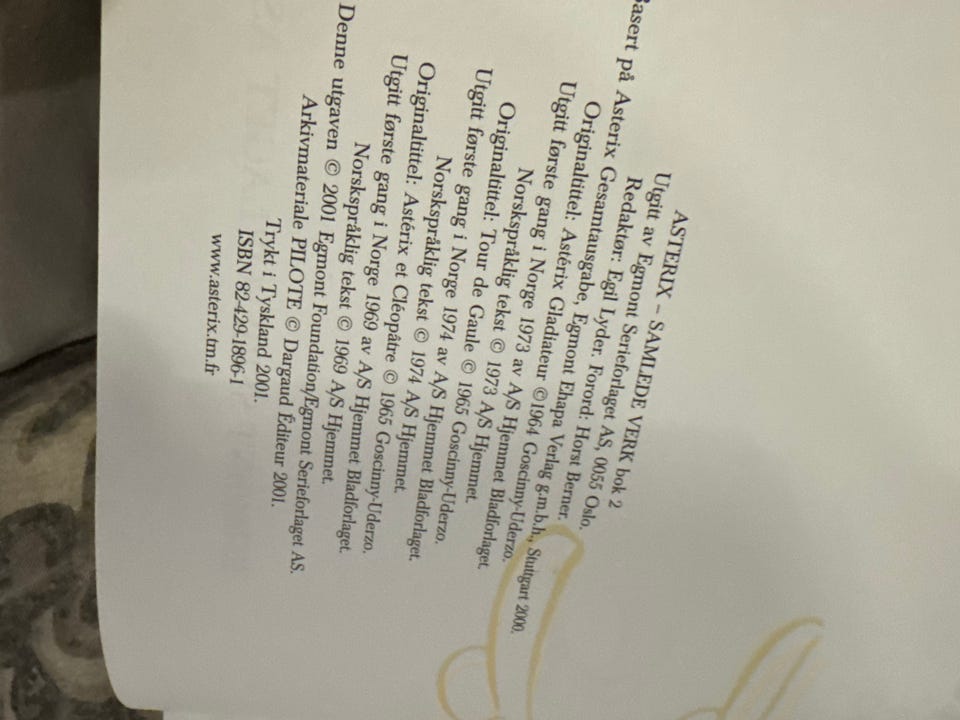 ASTERIX – SAMLEDE VERK bok 2
Utgitt av Egmont Serieforlaget AS, 0055 Oslo.
Redaktør: Egil Lyder. Forord: Horst Berner.
Basert på Asterix Gesamtausgabe, Egmont Ehapa Verlag g.m.b.h., Stuttgart 2000.
Originaltittel: Astérix Gladiateur ©1964 Goscinny-Uderzo.
Utgitt første gang i Norge 1973 av A/S Hjemmet Bladforlaget.
Norskspråklig tekst © 1973 A/S Hjemmet.
Originaltittel: Tour de Gaule © 1965 Goscinny-Uderzo.
Utgitt første gang i Norge 1974 av A/S Hjemmet Bladforlaget.
Norskspråklig tekst © 1974 A/S Hjemmet.
Originaltittel: Astérix et Cléopâtre © 1965 Goscinny-Uderzo.
Utgitt første gang i Norge 1969 av A/S Hjemmet Bladforlaget.
Norskspråklig tekst © 1969 A/S Hjemmet.
Denne utgaven © 2001 Egmont Foundation/Egmont Serieforlaget AS.
Arkivmateriale PILOTE © Dargaud Éditeur 2001.
Trykt i Tyskland 2001.
ISBN 82-429-1896-1
www.asterix.tm.fr